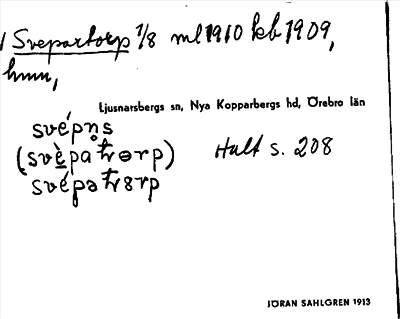 1 Svepartorp 1/8 ml 1910 kb 1909,
hmn,
Ljusnarsbergs sn, Nya Kopparbergs hd, Örebro län
svépn̥s
(svèpatrɵrp) Hult s. 208
svépatrɞrp
JÖRAN SAHLGREN 1913